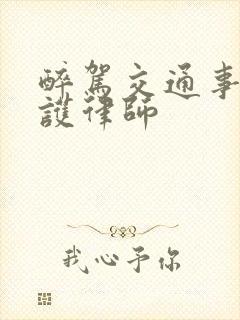 醉駕交通事
護律師
我心予你